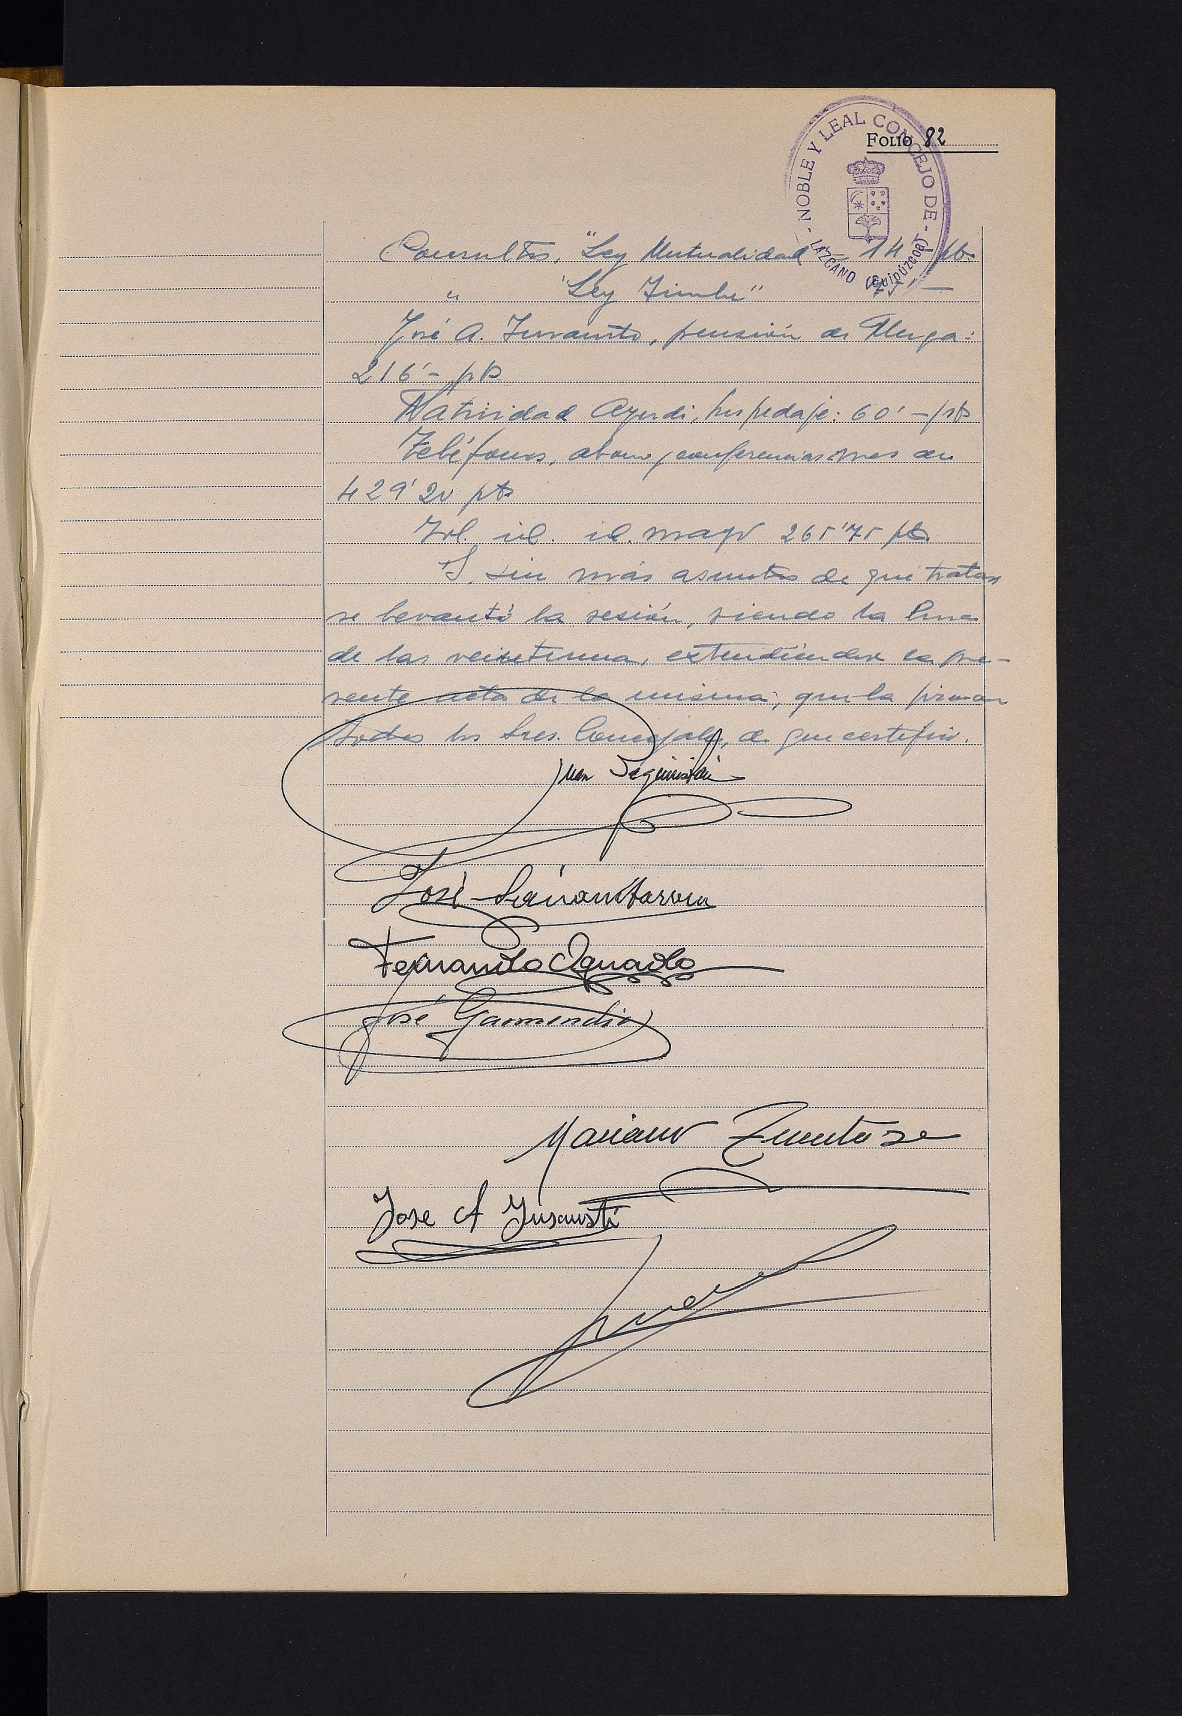 Folio 82
- NOBLE Y LEAL CONCEJO DE -
LAZCANO (Guipúzcoa)
Consultor, "Ley Mutualidad - 14 pts
" "Ley Timbre" 75'—
José A. Insausti, pensión de
216'- pts
Natividad Ayerdi, hospedaje: 60'- pts
Teléfonos, abono, conferencias mes de
429'20 pts
id. id. mayo 265'75 pts.
Y, sin más asuntos de que tratar
se levantó la sesión, siendo la hora
de las veintiuna, extendiendose la pre-
sente acta de la misma, que la firman
todos los Sres. Concejales, de que certifico.
Juan
José
Fernando Aguado
José Garmendia
Mariano
Jose A Insausti